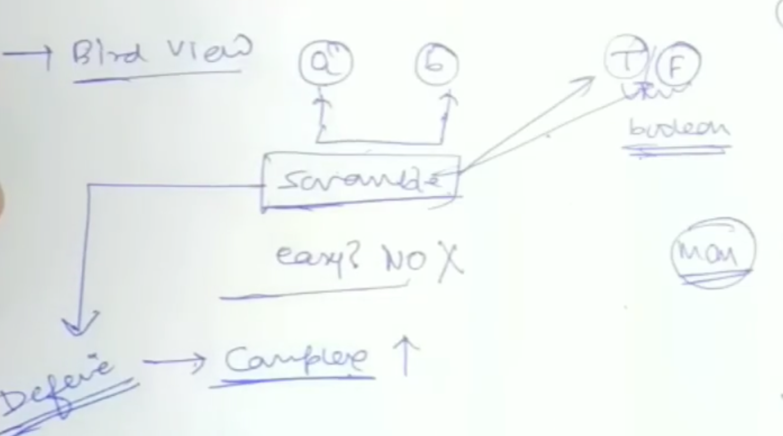 → Bird View a b T/F
boolean
Scramble
man
easy? NO X
Define → Complex ↑